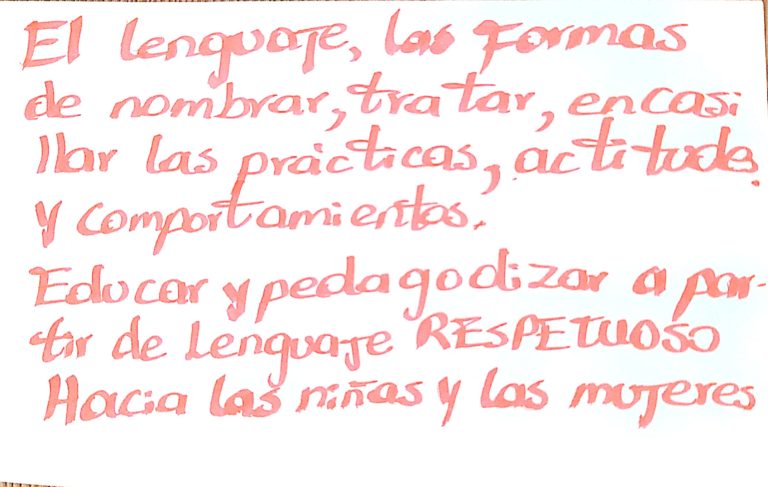 El lenguaje, las formas
de nombrar, tratar, encasi
llar las prácticas, actitudes
y comportamientos.
Educar y pedagodizar a par-
tir de Lenguaje RESPETUOSO
Hacia las niñas y las mujeres